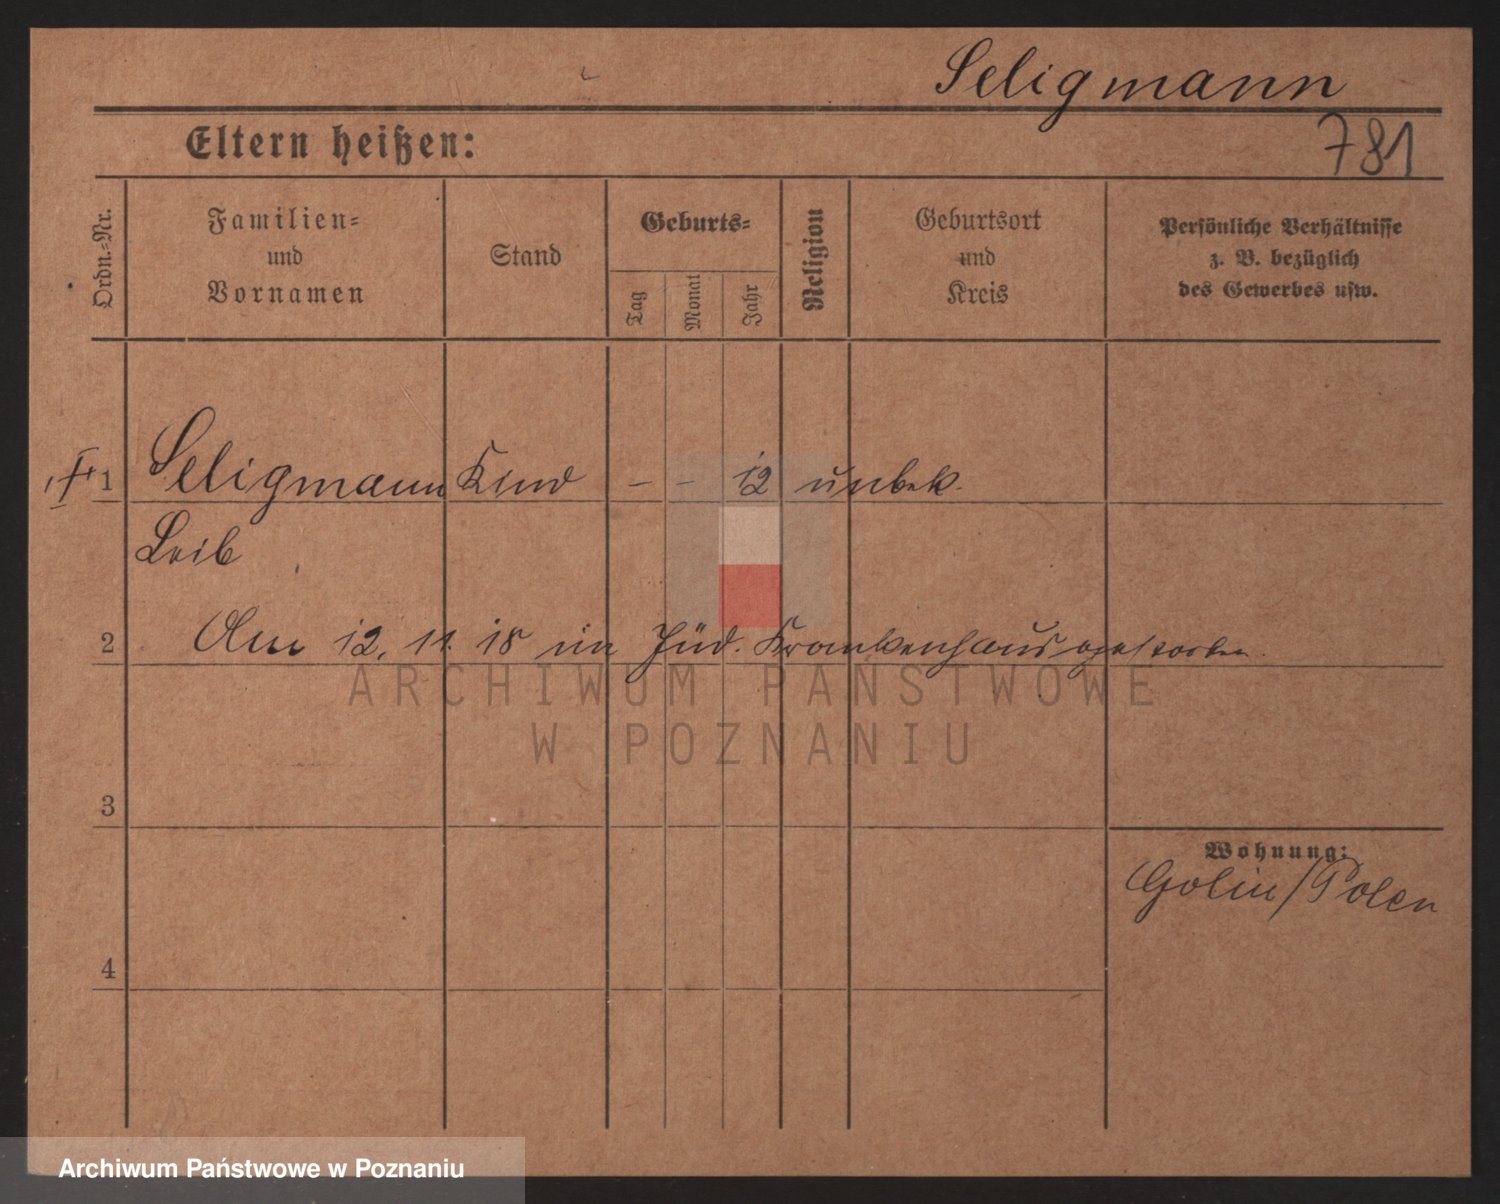 Seligmann
Eltern heißen:
781
Ordn.-Nr.
Familien-
und
Vornamen
Stand
Geburts-
Tag
Monat
Jahr
Religion
Geburtsort
und
Kreis
Persönliche Verhältnisse
z. B. bezüglich
des Gewerbes usw.
1 Seligmann Kind - - 12 unbek.
Leib
2 Am 12. 11. 18 im Jüd. Krankenhaus gestorben.
ARCHIWUM PAŃSTWOWE
W POZNANIU
3
Wohnung:
Golin/Polen
4
Archiwum Państwowe w Poznaniu